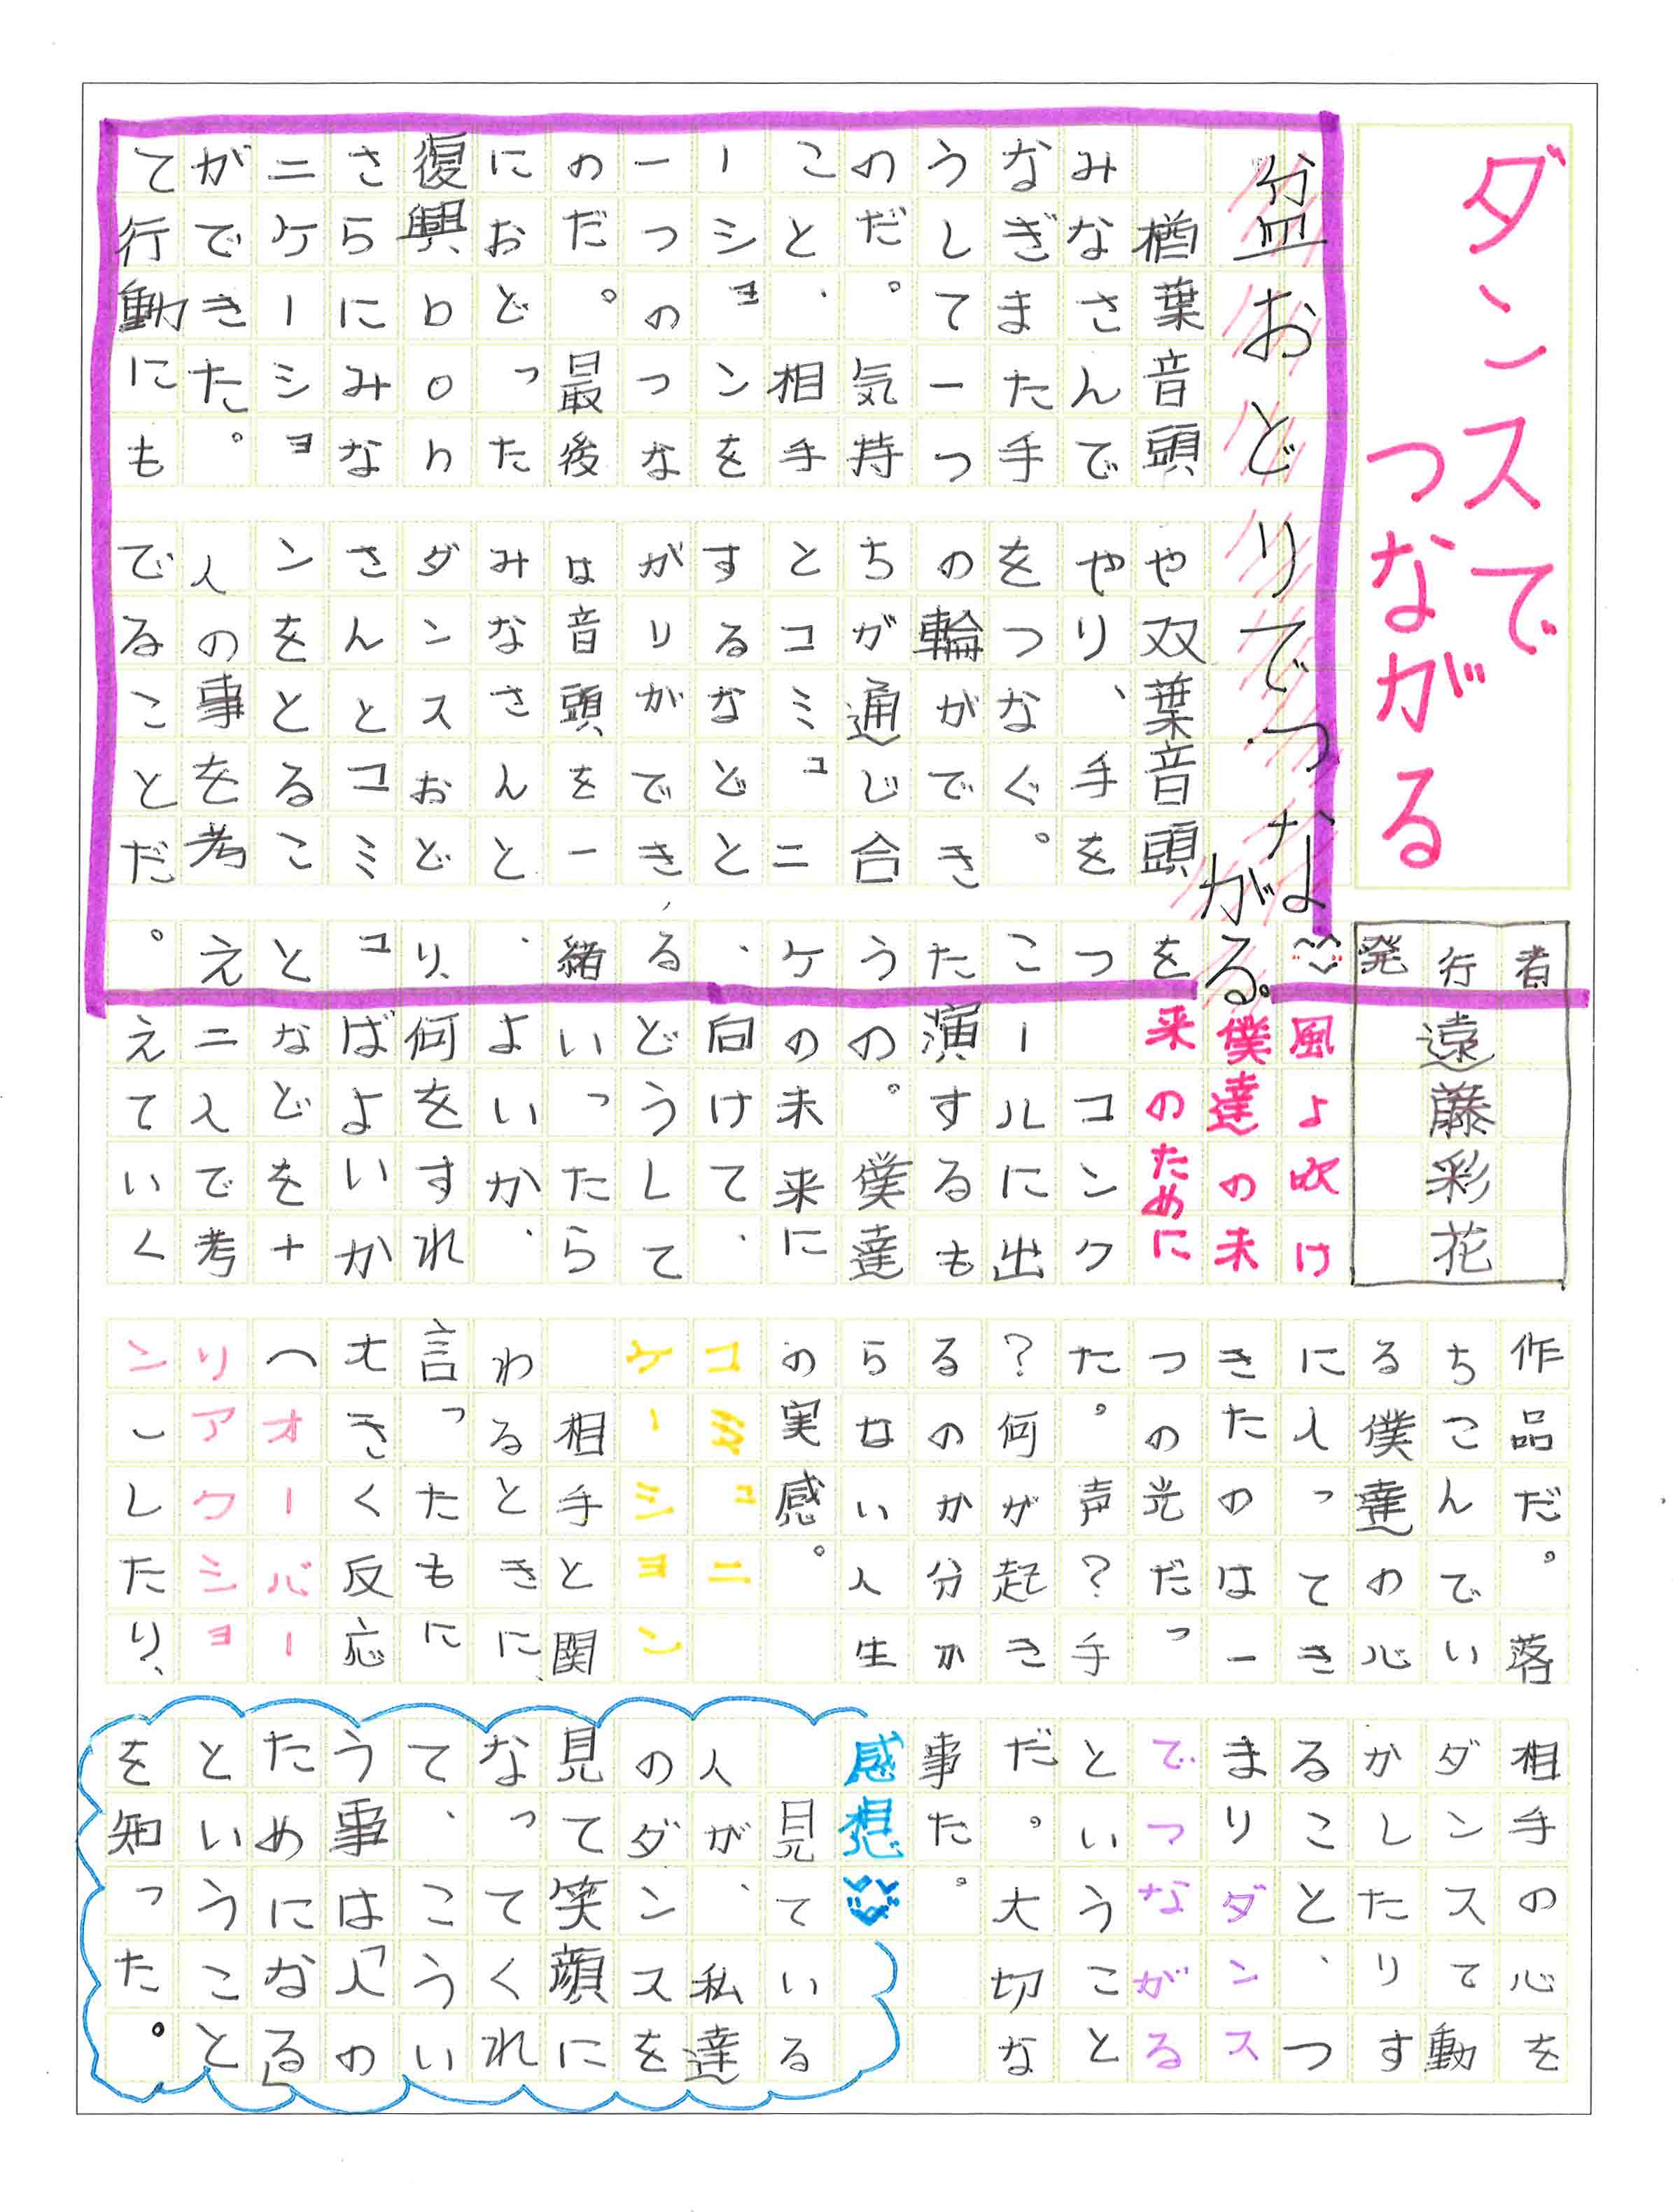 ダンスで
つながる
発行者
遠藤彩花
盆おどりでつながる。
楢葉音頭や双葉音頭を
みなさんでやり、手をつ
なぎまた手をつなぐ。こ
うして一つの輪ができた
のだ。気持ちが通じ合う
こと、相手とコミュニケ
ーションをするなどと、
一つのつながりができる
のだ。最後は音頭を一緒
におどったみなさんと、
復興bornダンスおどり、
さらにみなさんとコミュ
ニケーションをとること
ができた。人の事を考え
て行動にもでることだ。
風よ吹け
僕達の未
来のために
コンク
ールに出
演するも
の。僕達
の未来に
向けて、
どうして
いったら
よいか、
何をすれ
ばよいか
などを十
二人で考
えていく
作品だ。落
ちこんでい
る僕達の心
に入ってき
きたのは一
つの光だっ
た。声?手
?何が起き
るのか分か
らない人生
の実感。
コミュニ
ケーション
相手と関
わるときに、
言ったもに
大きく反応
(オーバー
リアクショ
ン)したり、
相手の心を
ダンスて動
かしたりす
ること、つ
まりダンス
でつながる
ということ
だ。大切な
事た。
感想
見ている
人が、私達
のダンスを
見て笑顔に
なってくれ
て、こうい
う事は「人の
ためになる」
ということ
を知った。